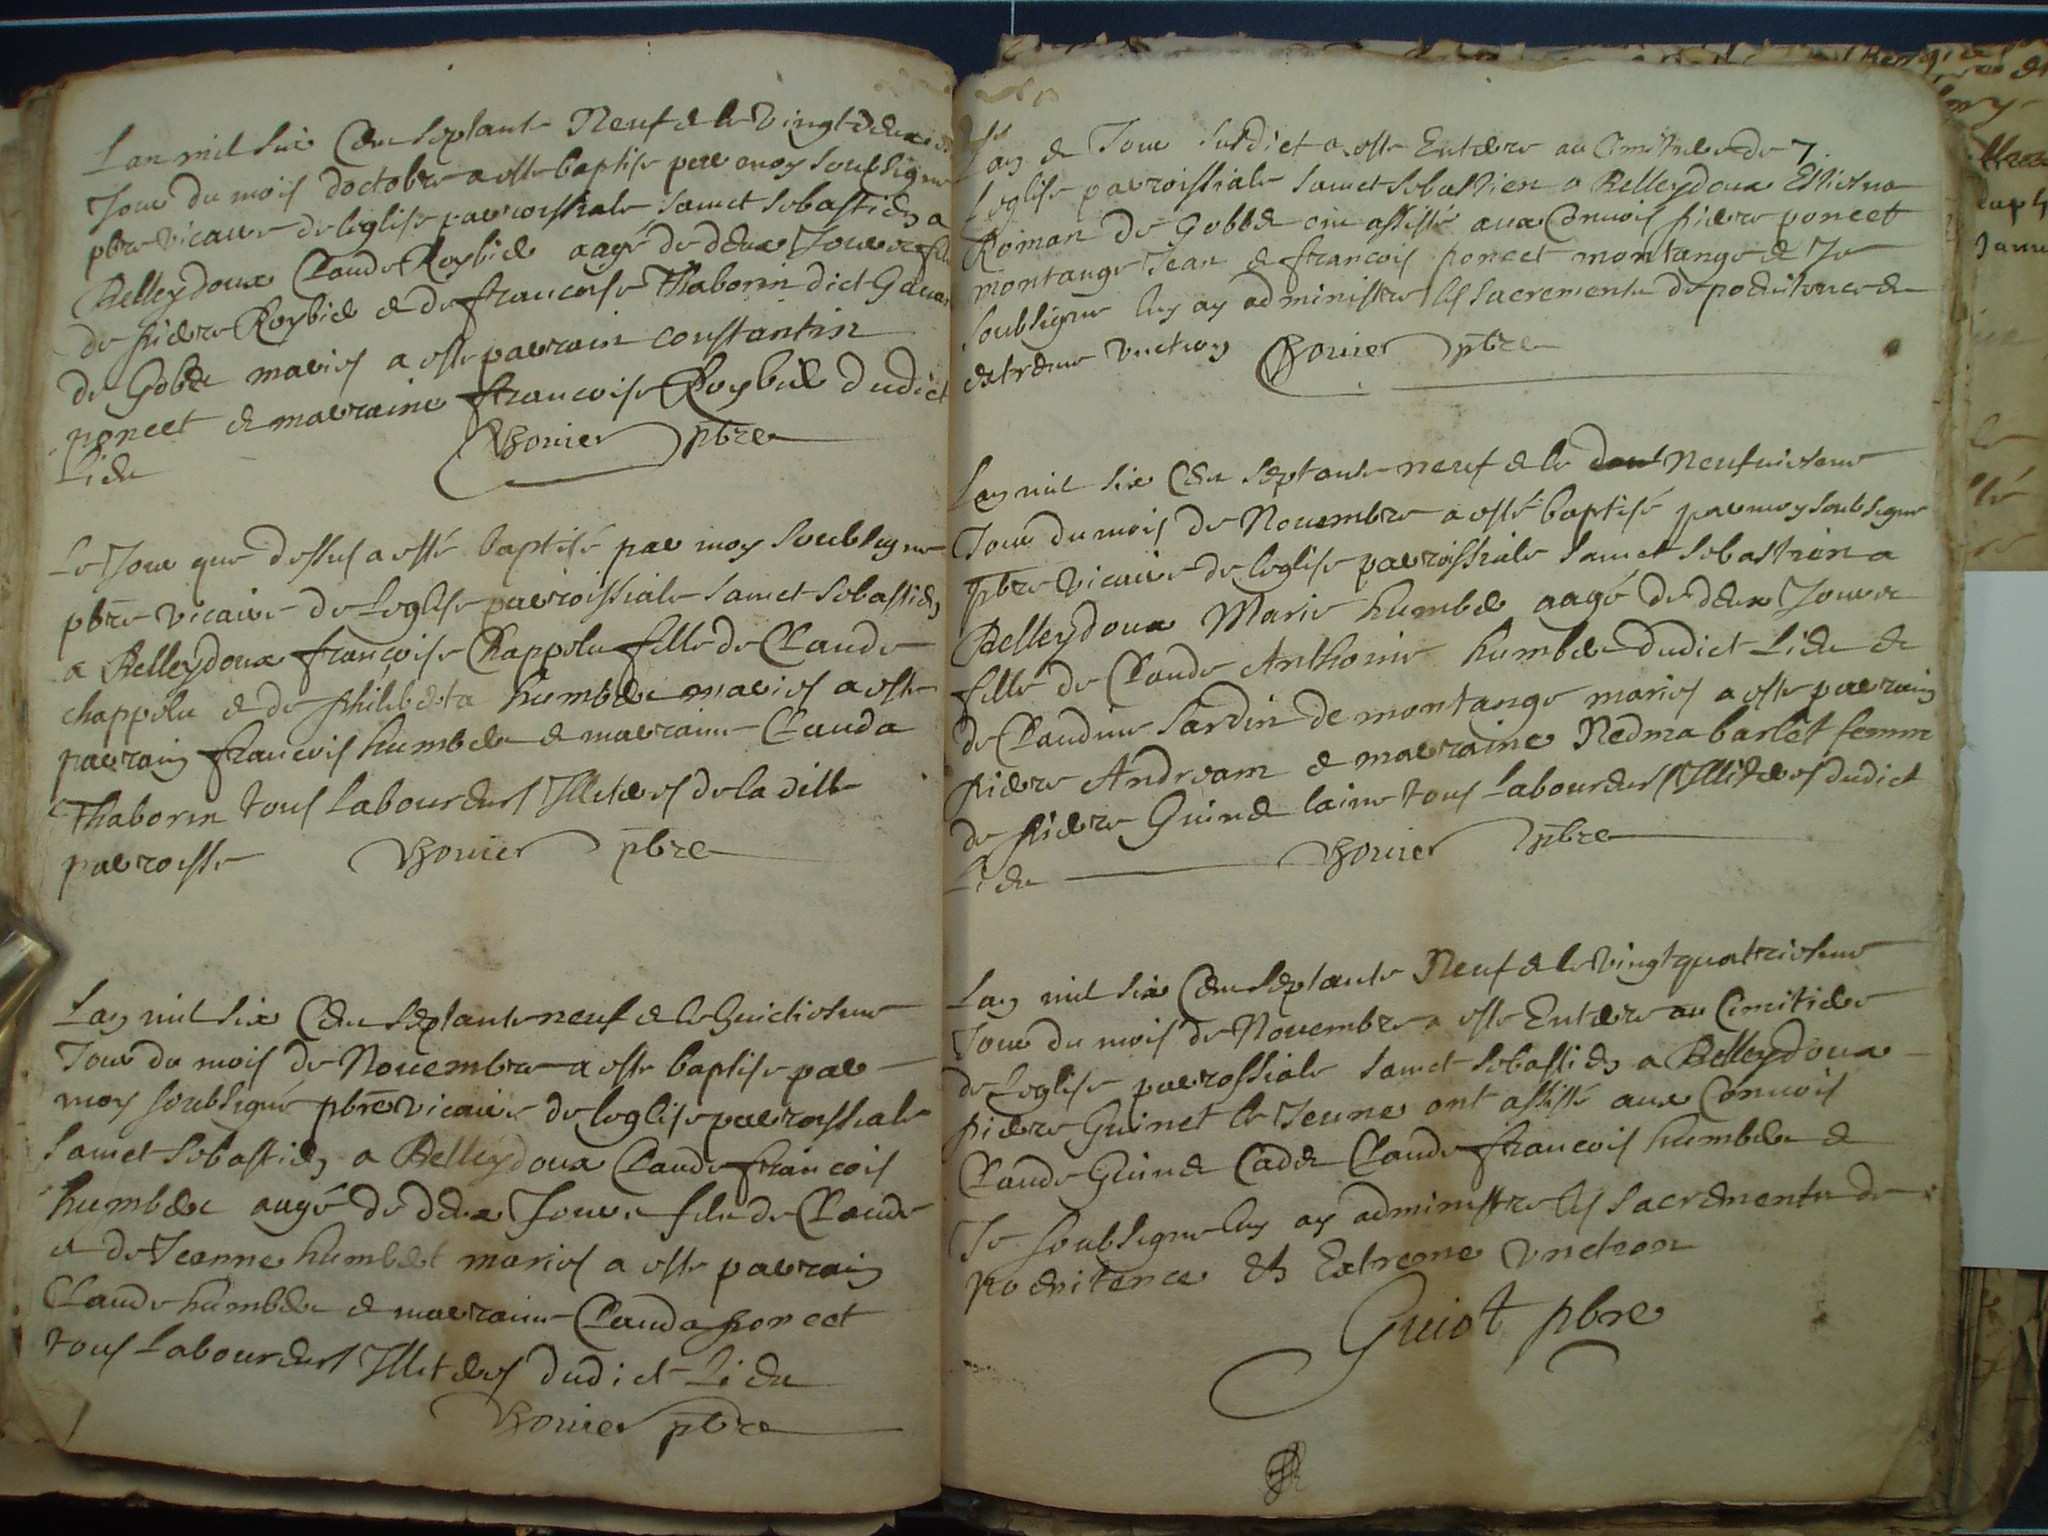 Lan mil six Cens septante Neuf & le Vingt deuxie
Jour du mois doctobre a este baptise par moy soubsigne
pbre vicaire de leglise parroissiale sainct sebastien a
Belleydoux Claude Roybiet aagé de deux Jours fils
de pierre Roybiet & de francoise Thaborin dict Gauar
de Gobet maries a este parrain constantin
poncet & marraine francoise Roybiet dudict
Lieu pbre
Le Jour que dessus a esté baptisé par moy soubsigne
pbre vicaire de Leglise parroissiale sainct sebastien
a Belleydoux françoise Chappelu fille de Claude
chappelu & de philiberta humbert maries a este
parrain francois humbert & marraine Clauda
Thaborin tous Laboureurs Illiteres de la dille
parroisse pbre
Lan mil six Cens septante neuf & le huictiesme
Jour du mois de Nouembre a este baptise par
moy soubsigné pbre vicaire de leglise parroissiale
sainct sebastien a Belleydoux Claude francois
humbert aagé de deux Jours fils de Claude
et de Jeanne humbert maries a este parrain
Claude humbert & marraine Clauda poncet
tous Laboureurs Illiteres dudict Lieu
pbre
Lan & Jour susdict a este Enterre au Cimitiere de
Leglise parroissiale sainct sebastien a Belleydoux Estiena
Roman de Gobbet ont assisté aux Conuois pierre poncet
montange Jean & francois poncet montange & Je
soubsigne luy ay administre les sacrements de poenitence &
extreme unction pbre
Lan mil six Cens septante neuf & le dout Neufuiesme
Jour du mois de Nouembre a esté baptisé par moy soubsigne
pbre vicaire de leglise parroissiale sainct sebastien a
Belleydoux Marie humbert aagé de deux Jours
fille de Claude Anthoine humbert dudict Lieu &
de Claudine sardin de montange maries a este parrain
pierre Andream & marraine Nedma barlet femme
de pierre Guinet laine tous Laboureurs Illiteres dudict
Lieu pbre
Lan mil six Cens septante Neuf & le Vingtquatriesme
Jour du mois de Nouembre a este Enterre au Cimitiere
de Leglise parrossiale sainct sebastien a Belleydoux
pierre Guinet le Jeune ont assisté aux Conuois
Claude Guinet Cadet Claude francois humbert &
Je soubsigne luy ay administre les sacrements de
poenitence Et Extreme Vnction
Guiot pbre